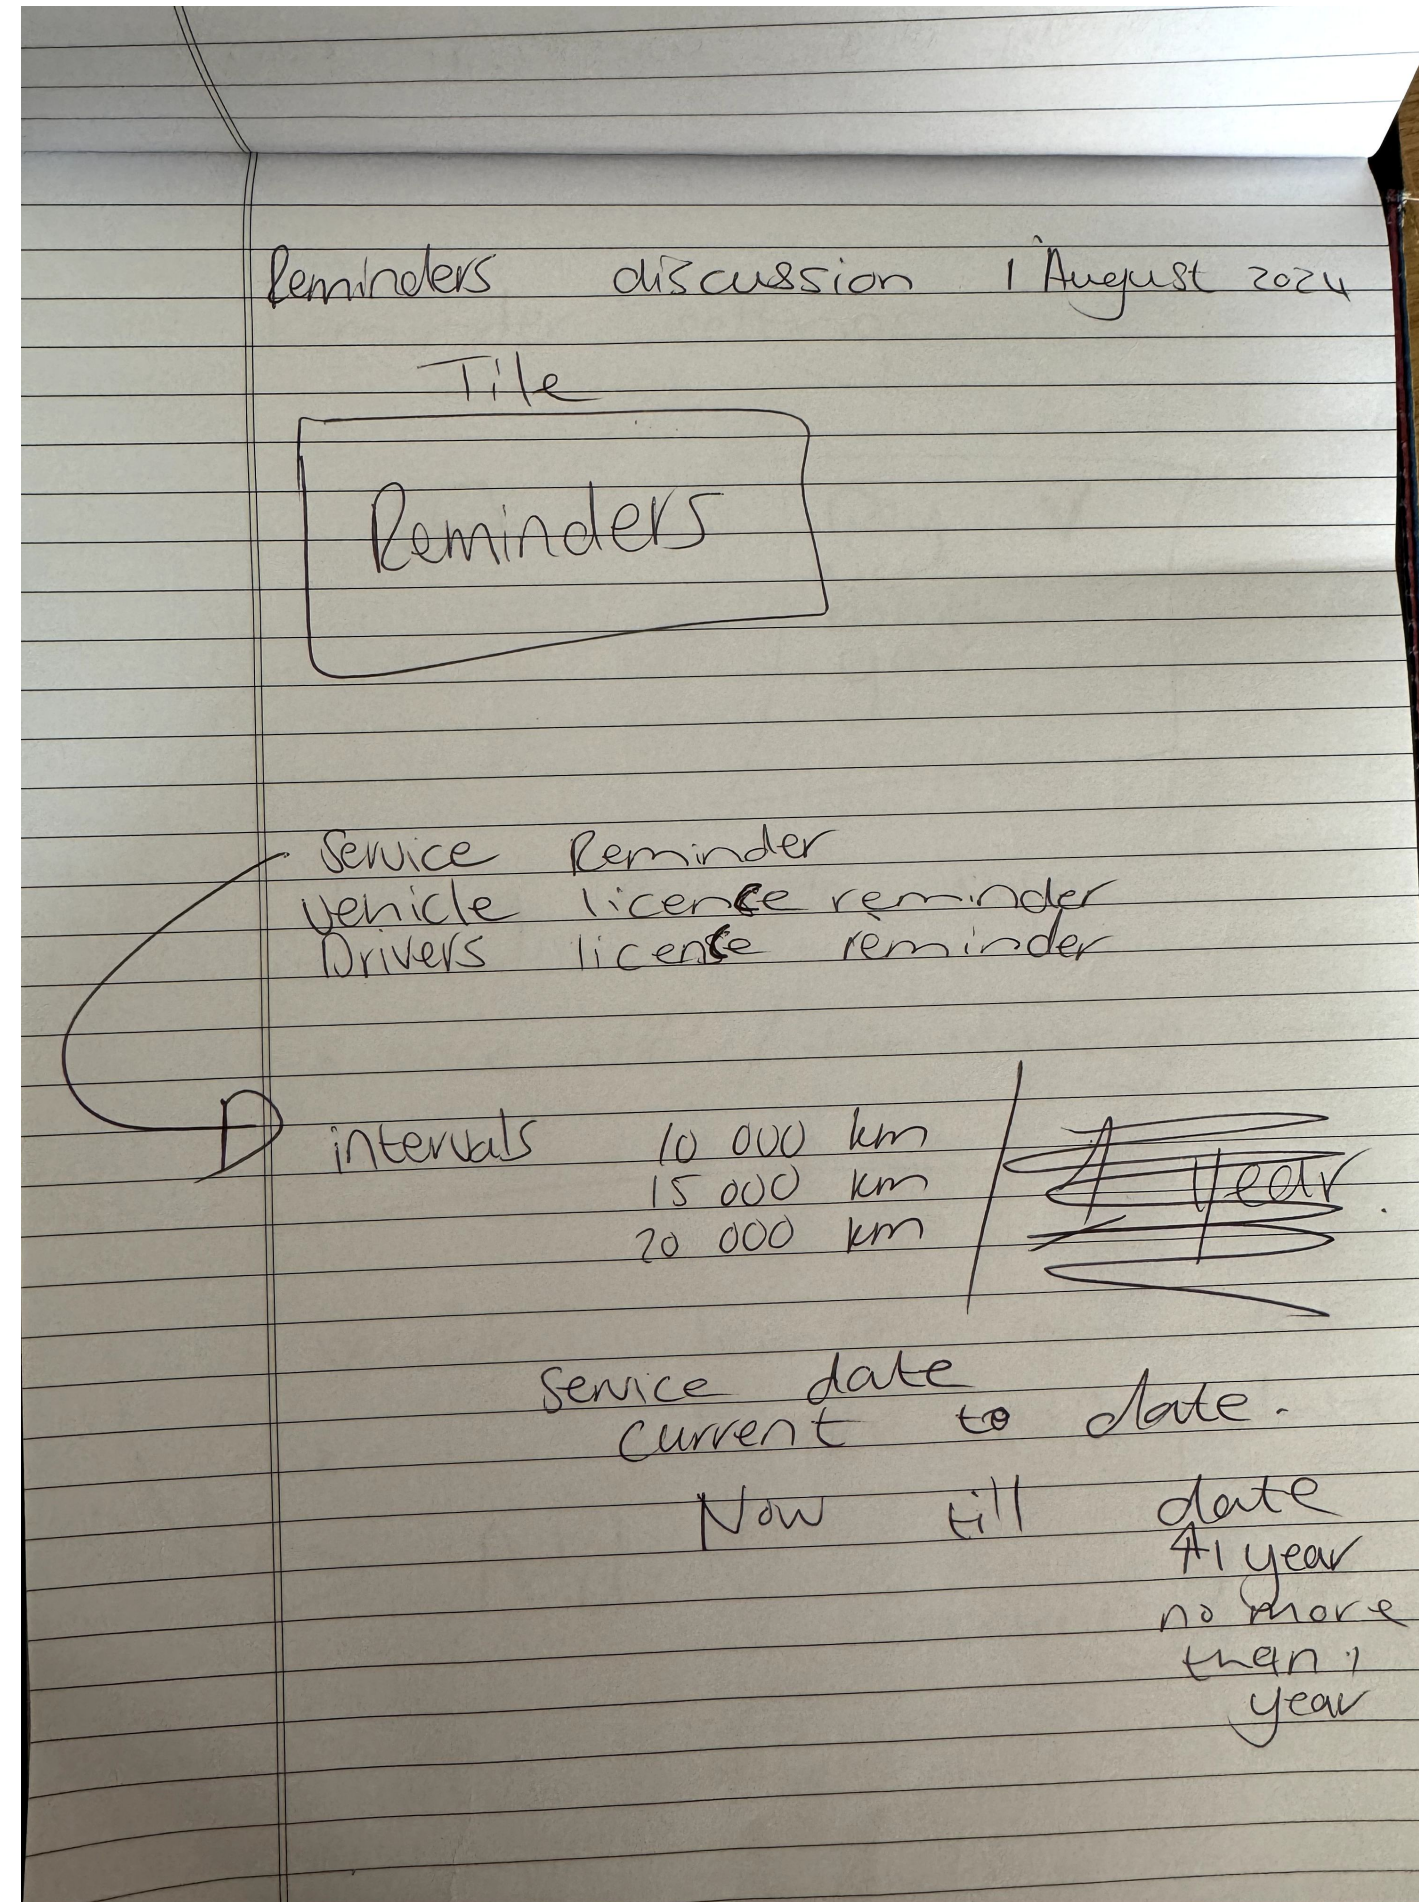 Reminders discussion 1 August 2024
Tile
Reminders
Service Reminder
vehicle license reminder
Drivers license reminder
intervals 10 000 km / 1 year
15 000 km
20 000 km
Service date
current to date.
Now till date
1 year
no more
than 1
year